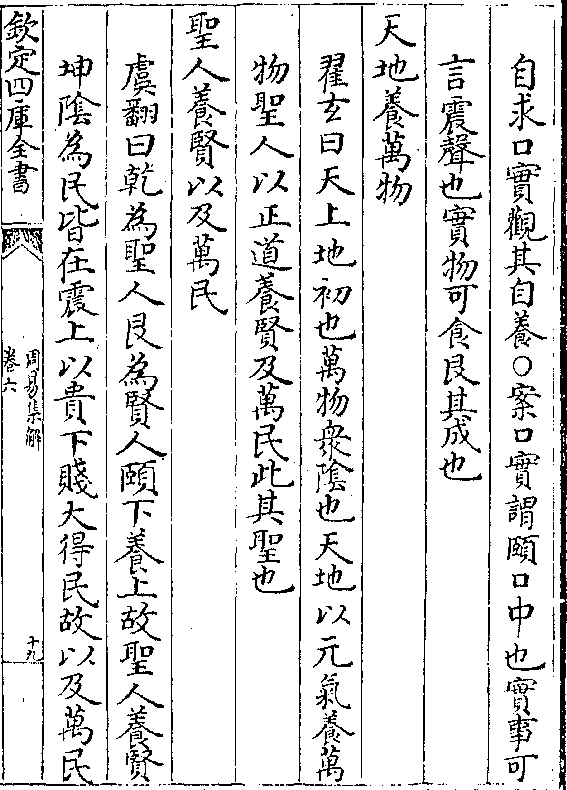 自求口實觀其自養○案口實謂頤口中也實事可
言震聲也實物可食艮其成也
天地養萬物
翟玄曰天上地初也萬物衆陰也天地以元氣養萬
物聖人以正道養賢及萬民此其聖也
聖人養賢以及萬民
虞翻曰乾為聖人艮為賢人頤下養上故聖人養賢
坤陰為民皆在震上以貴下賤大得民故以及萬民
欽定四庫全書
周易集解
卷六
十九